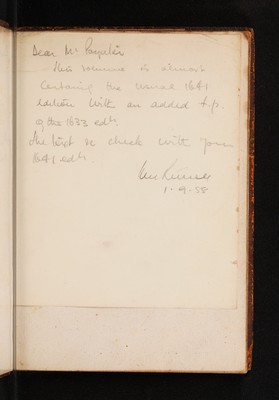 Dear Mr Poynter
This volume is almost
certainly the usual 1641
edition with an added t.p.
of the 1633 edtn.
to check with your
1641 edtn.
1-9-55